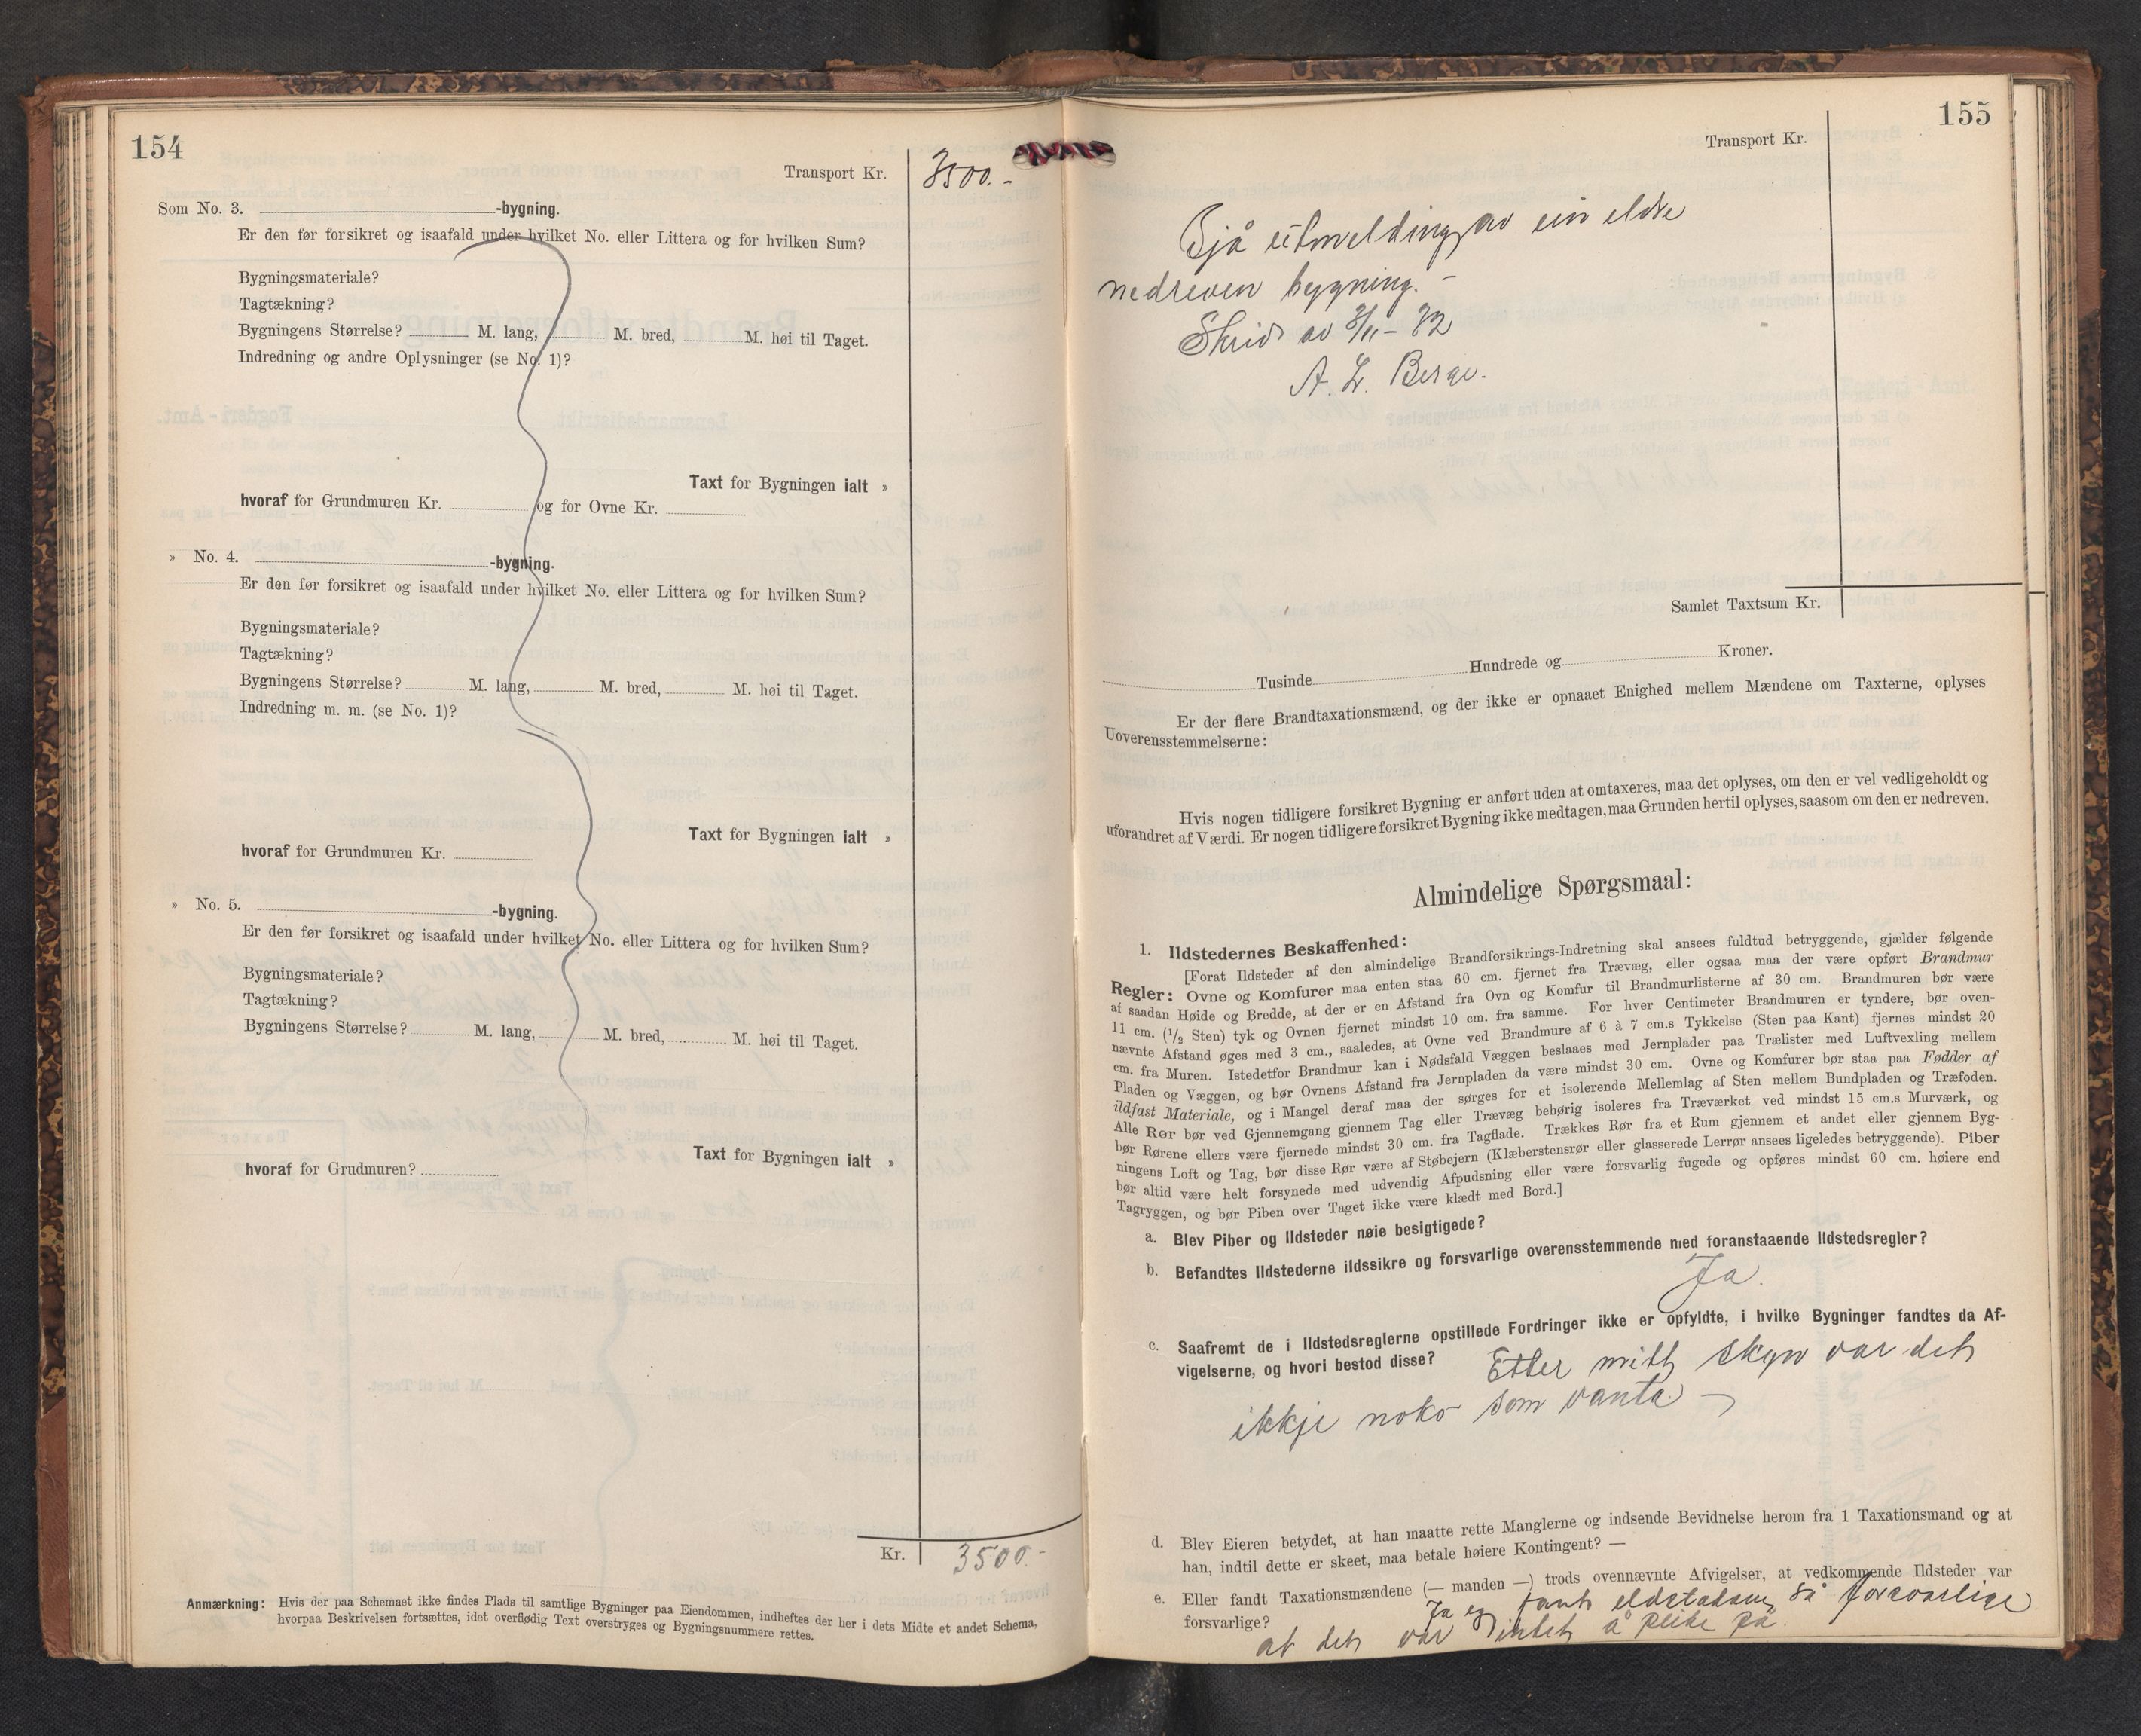 154
Transport Kr. 3500.-
Som No. 3. -bygning.
Er den før forsikret og isaafald under hvilket No. eller Littera og for hvilken Sum?
Bygningsmateriale?
Tagtækning?
Bygningens Størrelse? M. lang, M. bred, M. høi til Taget.
Indredning og andre Oplysninger (se No. 1)?
Taxt for Bygningen ialt »
hvoraf for Grundmuren Kr. og for Ovne Kr.
» No. 4. -bygning.
Er den før forsikret og isaafald under hvilket No. eller Littera og for hvilken Sum?
Bygningsmateriale?
Tagtækning?
Bygningens Størrelse? M. lang, M. bred, M. høi til Taget.
Indredning m. m. (se No. 1)?
Taxt for Bygningen ialt »
hvoraf for Grundmuren Kr.
» No. 5. -bygning.
Er den før forsikret og isaafald under hvilket No. eller Littera og for hvilken Sum?
Bygningsmateriale?
Tagtækning?
Bygningens Størrelse? M. lang, M. bred, M. høi til Taget.
Taxt for Bygningen ialt »
hvoraf for Grudmuren?
Kr. 3500.-
Anmærkning: Hvis der paa Schemaet ikke findes Plads til samtlige Bygninger paa Eiendommen, indheftes der her i dets Midte et andet Schema,
hvorpaa Beskrivelsen fortsættes, idet overflødig Text overstryges og Bygningsnummere rettes.
155
Transport Kr.
Sjå utmelding av ein eldre
nedreven bygning. -
Skriv av 3/11 - 32
A. L. Berge.
Samlet Taxtsum Kr.
Tusinde Hundrede og Kroner.
Er der flere Brandtaxationsmænd, og der ikke er opnaaet Enighed mellem Mændene om Taxterne, oplyses
Uoverensstemmelserne:
Hvis nogen tidligere forsikret Bygning er anført uden at omtaxeres, maa det oplyses, om den er vel vedligeholdt og
uforandret af Værdi. Er nogen tidligere forsikret Bygning ikke medtagen, maa Grunden hertil oplyses, saasom om den er nedreven.
Almindelige Spørgsmaal:
1. Ildstedernes Beskaffenhed:
[Forat Ildsteder af den almindelige Brandforsikrings-Indretning skal ansees fuldtud betryggende, gjælder følgende
Regler: Ovne og Komfurer maa enten staa 60 cm. fjernet fra Trævæg, eller ogsaa maa der være opført Brandmur
af saadan Høide og Bredde, at der er en Afstand fra Ovn og Komfur til Brandmurlisterne af 30 cm. Brandmuren bør være
11 cm. (1/2 Sten) tyk og Ovnen fjernet mindst 10 cm. fra samme. For hver Centimeter Brandmuren er tyndere, bør oven-
nævnte Afstand øges med 3 cm., saaledes, at Ovne ved Brandmure af 6 à 7 cm.s Tykkelse (Sten paa Kant) fjernes mindst 20
cm. fra Muren. Istedetfor Brandmur kan i Nødsfald Væggen beslaaes med Jernplader paa Trælister med Luftvexling mellem
Pladen og Væggen, og bør Ovnens Afstand fra Jernpladen da være mindst 30 cm. Ovne og Komfurer bør staa paa Fødder af
ildfast Materiale, og i Mangel deraf maa der sørges for et isolerende Mellemlag af Sten mellem Bundpladen og Træfoden.
Alle Rør bør ved Gjennemgang gjennem Tag eller Trævæg behørig isoleres fra Træværket ved mindst 15 cm.s Murværk, og
bør Rørene ellers være fjernede mindst 30 cm. fra Tagflade. Trækkes Rør fra et Rum gjennem et andet eller gjennem Byg-
ningens Loft og Tag, bør disse Rør være af Støbejern (Klæberstensrør eller glasserede Lerrør ansees ligeledes betryggende). Piber
bør altid være helt forsynede med udvendig Afpudsning eller være forsvarlig fugede og opføres mindst 60 cm. høiere end
Tagryggen, og bør Piben over Taget ikke være klædt med Bord.]
a. Blev Piber og Ildsteder nøie besigtigede?
b. Befandtes Ildstederne ildssikre og forsvarlige overensstemmende med foranstaaende Ildstedsregler?
Ja.
c. Saafremt de i Ildstedsreglerne opstillede Fordringer ikke er opfyldte, i hvilke Bygninger fandtes da Af-
vigelserne, og hvori bestod disse? Etter mitt skyn var det
ikkje noko som vanta -
d. Blev Eieren betydet, at han maatte rette Manglerne og indsende Bevidnelse herom fra 1 Taxationsmand og at
han, indtil dette er skeet, maa betale høiere Kontingent? —
e. Eller fandt Taxationsmændene (— manden —) trods ovennævnte Afvigelser, at vedkommende Ildsteder var
forsvarlige? Ja eg fant eldstadane så forsvarlige
at det var intet å